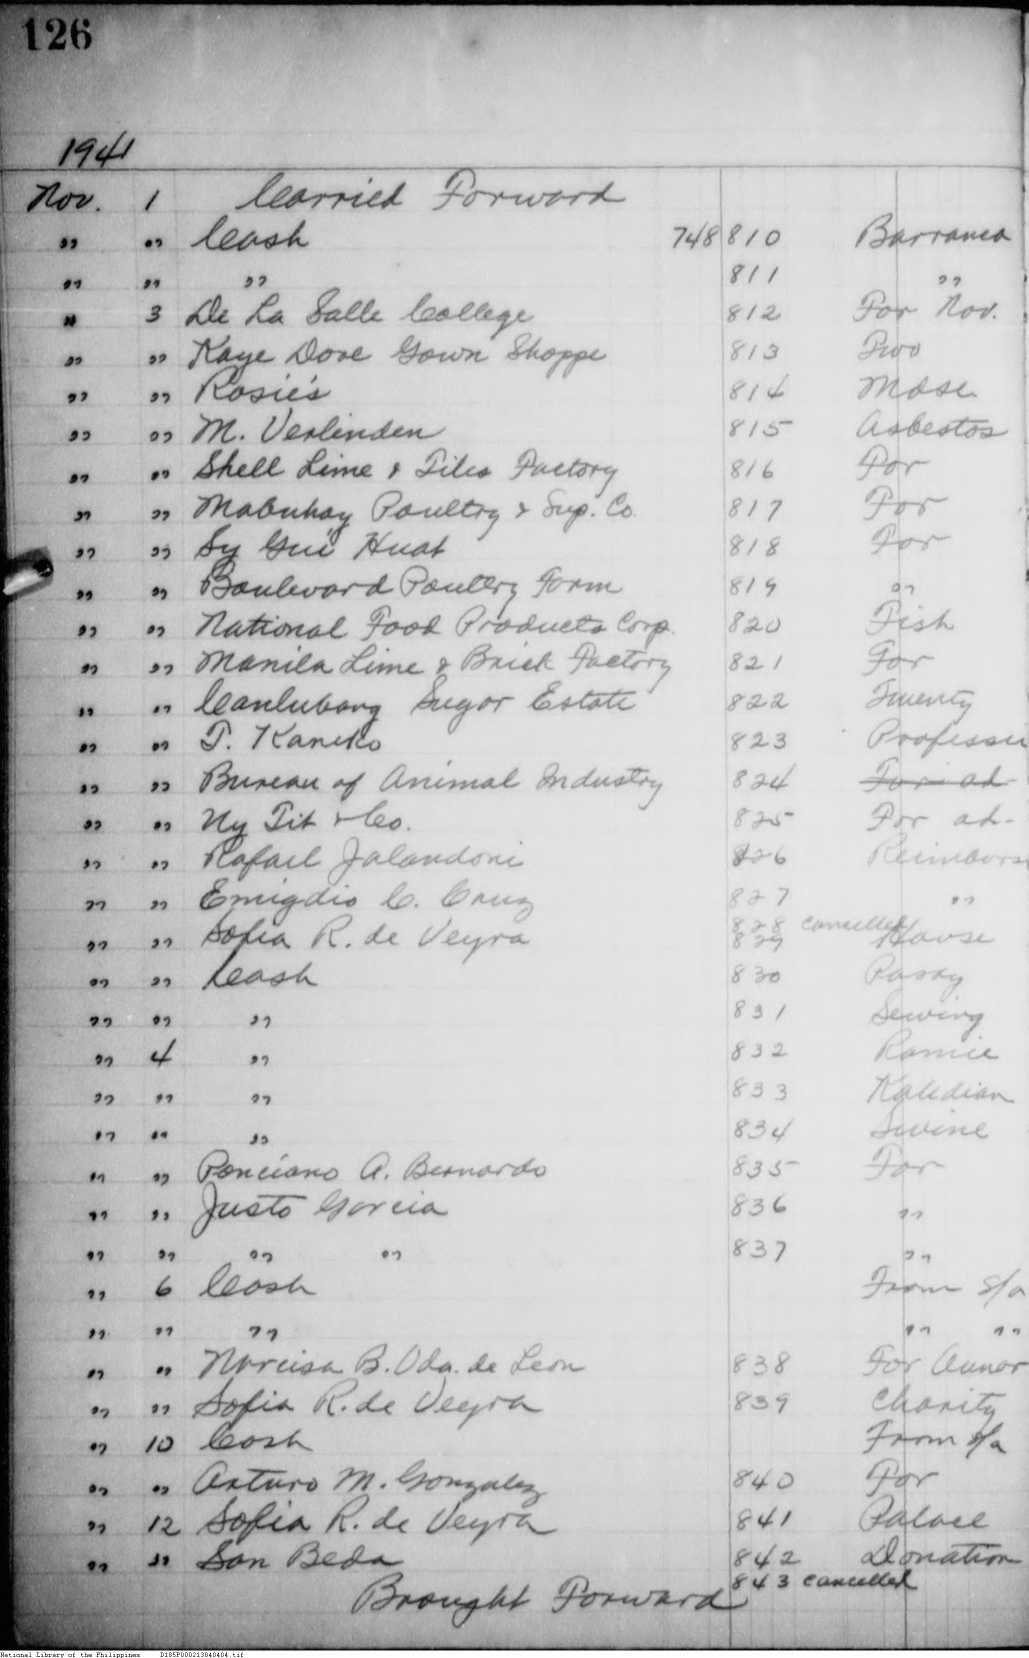 126
1941
Nov. 1 Carried Forward
" " Cash 748 810 Barranca
" " " 811 "
" 3 De La Salle College 812 For Nov.
" " Kaye Dove Gown Shoppe 813 Two
" " Rosie's 814 Mdse.
" " M. Verlinden 815 Asbestos
" " Shell Lime & Tiles Factory 816 For
" " Mabuhay Poultry & Sup. Co. 817 For
" " Sy Gui Huat 818 For
" " Boulevard Poultry Farm 819 "
" " National Food Products Corp. 820 Fish
" " Manila Lime & Brick Factory 821 For
" " Canlubang Sugar Estate 822 Twenty
" " T. Kaneko 823 Professi
" " Bureau of Animal Industry 824 For ad-
" " Ny Tit & Co. 825 For ad-
" " Rafael Jalandoni 826 Reimburs
" " Emigdio C. Cruz 827 "
828 cancelled
" " Sofia R. de Veyra 829 House
" " Cash 830 Pasay
" " " 831 Sewing
" 4 " 832 Ramie
" " " 833
" " " 834 Swine
" " Ponciano A. Bernardo 835 For
" " Justo Garcia 836 "
" " " " 837 "
" 6 Cash From s/a
" " " " "
" " Narcisa B. Vda. de Leon 838 For
" " Sofia R. de Veyra 839 Charity
" 10 Cash From s/a
" " Arturo M. Gonzalez 840 For
" 12 Sofia R. de Veyra 841 Palace
" " San Beda 842 Donation
843 cancelled
Brought Forward
National Library of the Philippines D185P000213840404.tif